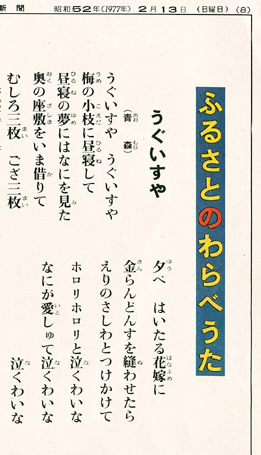 新聞 昭和52年(1977年) 2月13日 (日曜日) (8)
ふるさとのわらべうた
うぐいすや
(青森)
うぐいすや うぐいすや
梅の小枝に昼寝して
昼寝の夢にはなにを見た
奥の座敷をいま借りて
むしろ三枚 ござ三枚
夕べ はいたる花嫁に
金らんどんすを縫わせたら
えりのさしわとつけかけて
ホロリホロリと泣くわいな
なにが愛しゅて泣くわいな
泣くわいな